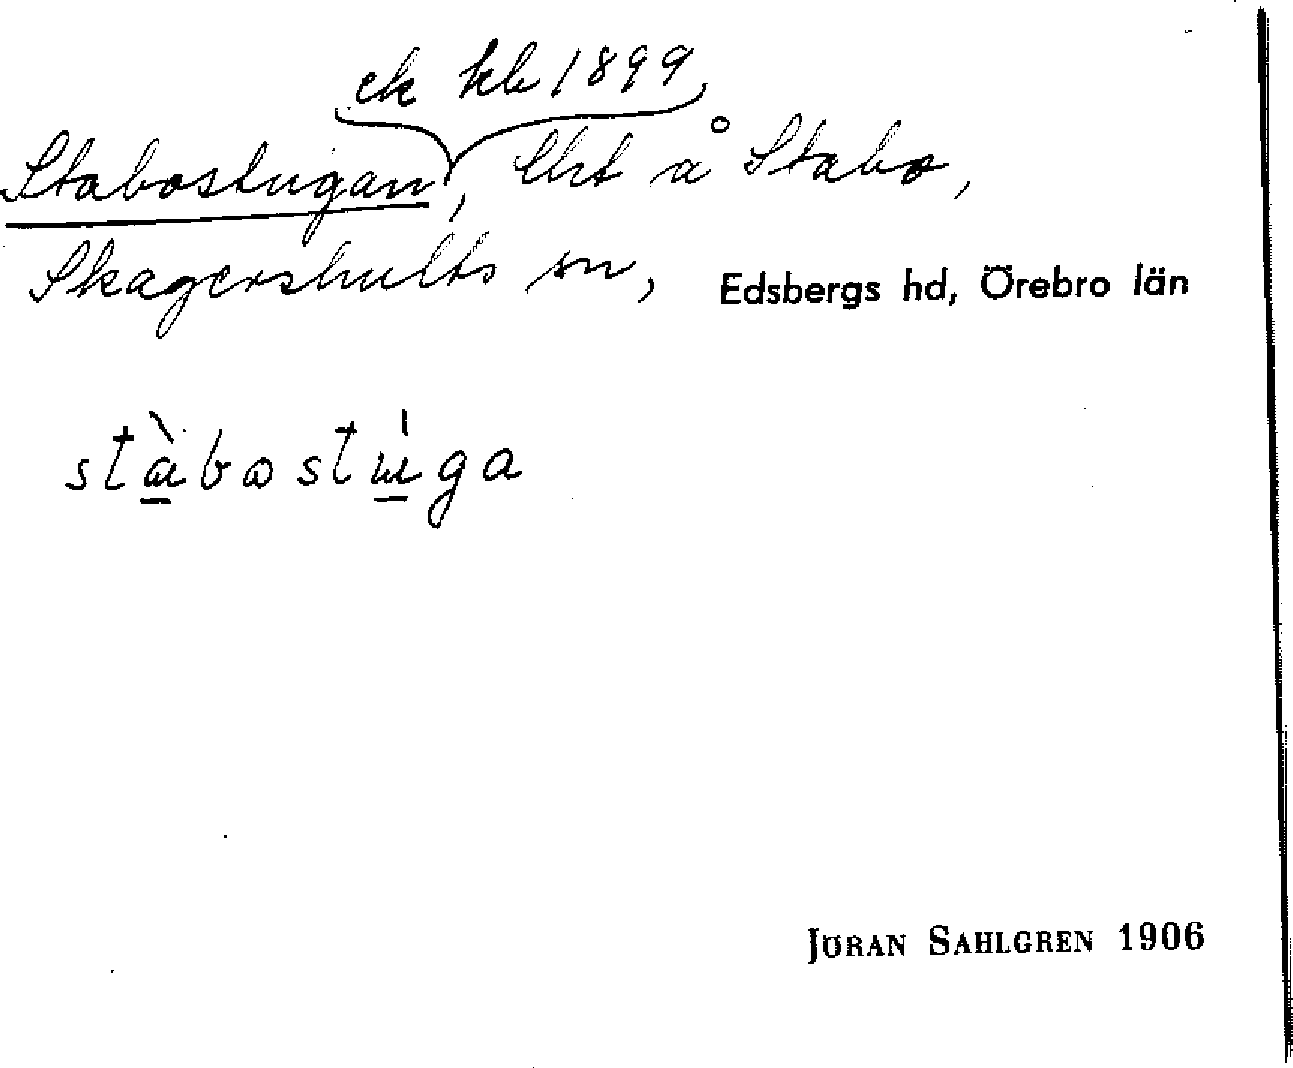 ek kb 1899
Stabostugan, lht å Stabo,
Skagershults sn, Edsbergs hd, Örebro län
stàbostúga
JÖRAN SAHLGREN 1906